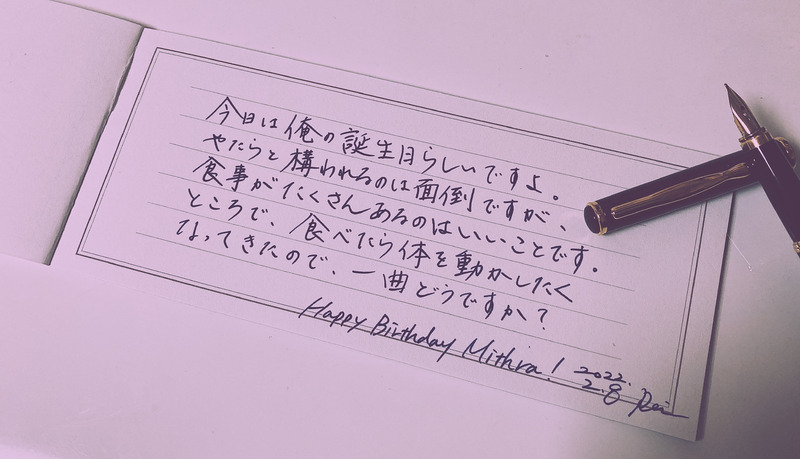 今日は俺の誕生日らしいですよ。
やたらと構われるのは面倒ですが、
食事がたくさんあるのはいいことです。
ところで、食べたら体を動かしたく
なってきたので、一曲どうですか？
Happy Birthday Mithra!
2022.
2.8 Rei